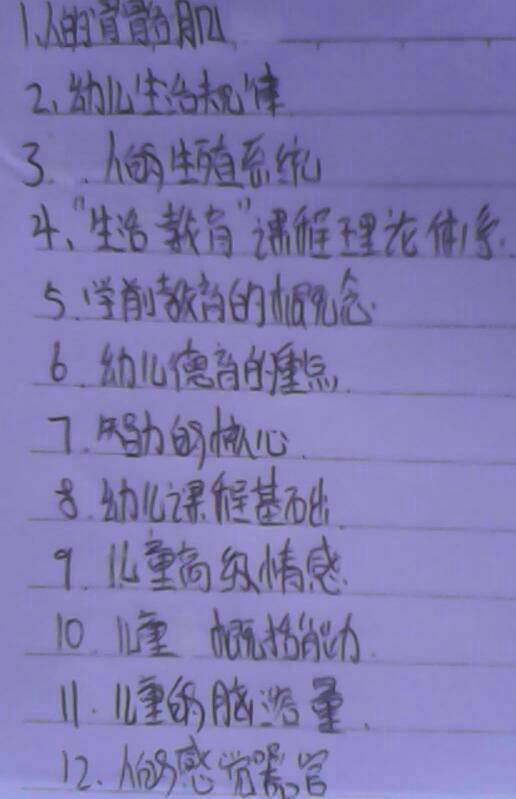 1.人的骨骼肌
2.幼儿生活规律
3.人的生殖系统
4、"生活教育"课程理论体系.
5.学前教育的概念.
6.幼儿德育的重点.
7.智力的核心.
8.幼儿课程基础
9.儿童高级情感.
10.儿童 概括能力.
11.儿童的脑活量.
12.人的感觉器官